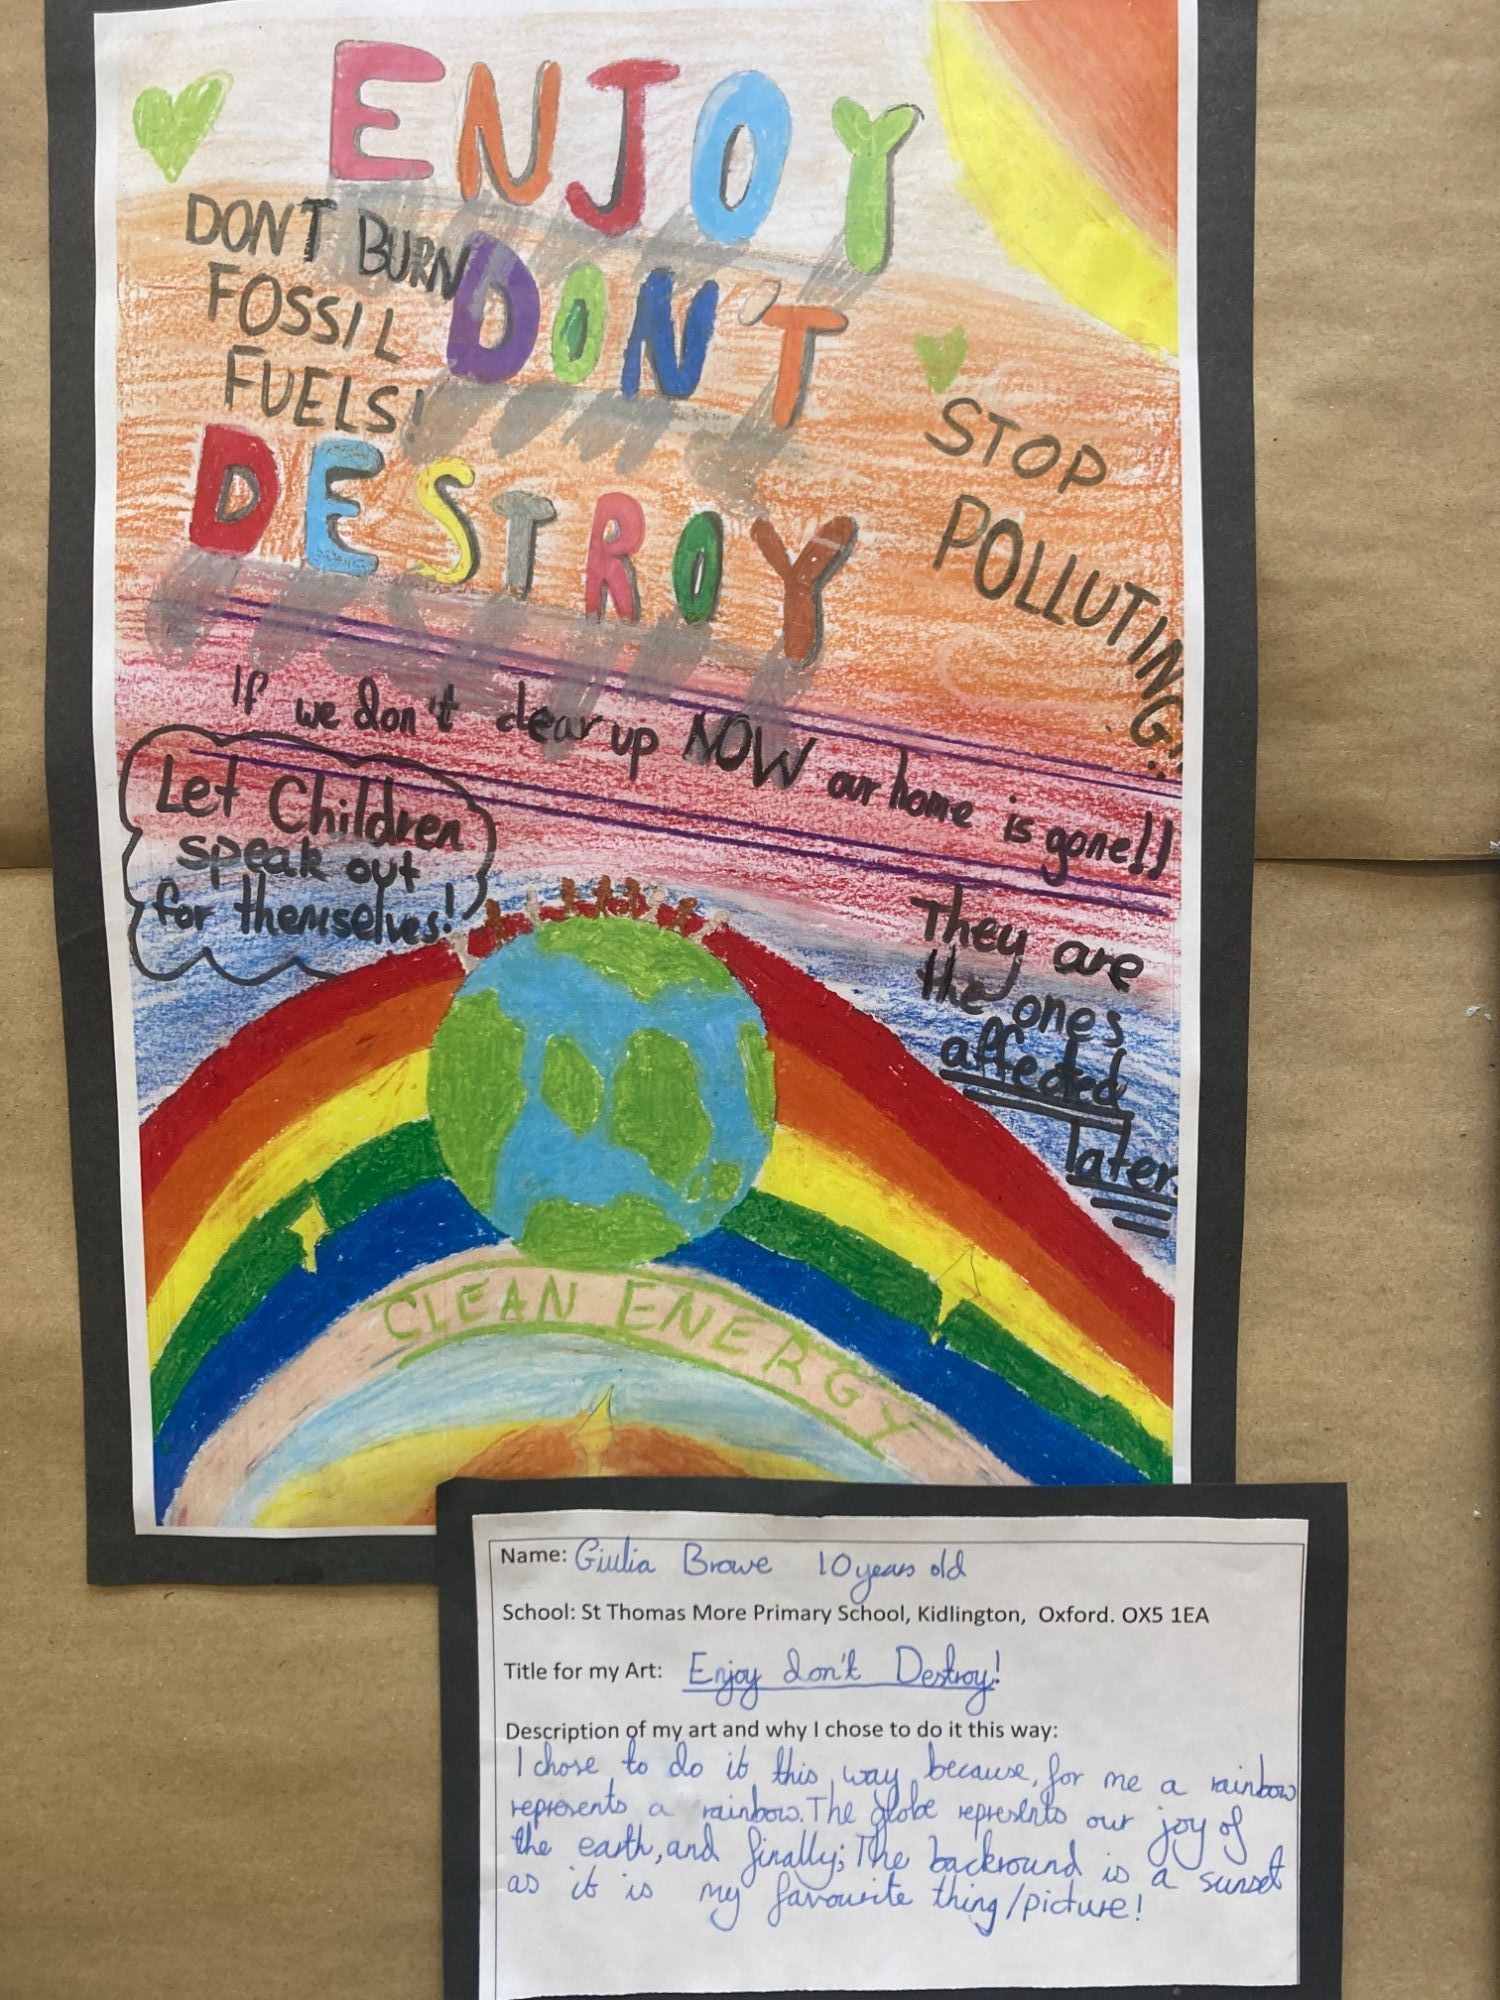 ENJOY
DONT BURN
FOSSIL
FUELS!
DON'T
DESTROY
STOP
POLLUTING!!
If we don't clear up NOW our home is gone!!
Let Children
speak out
for themselves!
They are
the ones
affected
later.
CLEAN ENERGY
Name: Giulia Browe 10 years old
School: St Thomas More Primary School, Kidlington, Oxford. OX5 1EA
Title for my Art: Enjoy don't Destroy!
Description of my art and why I chose to do it this way:
I chose to do it this way because, for me a rainbow
represents a rainbow. The globe represents our joy of
the earth, and finally; The backround is a sunset
as it is my favourite thing/picture!